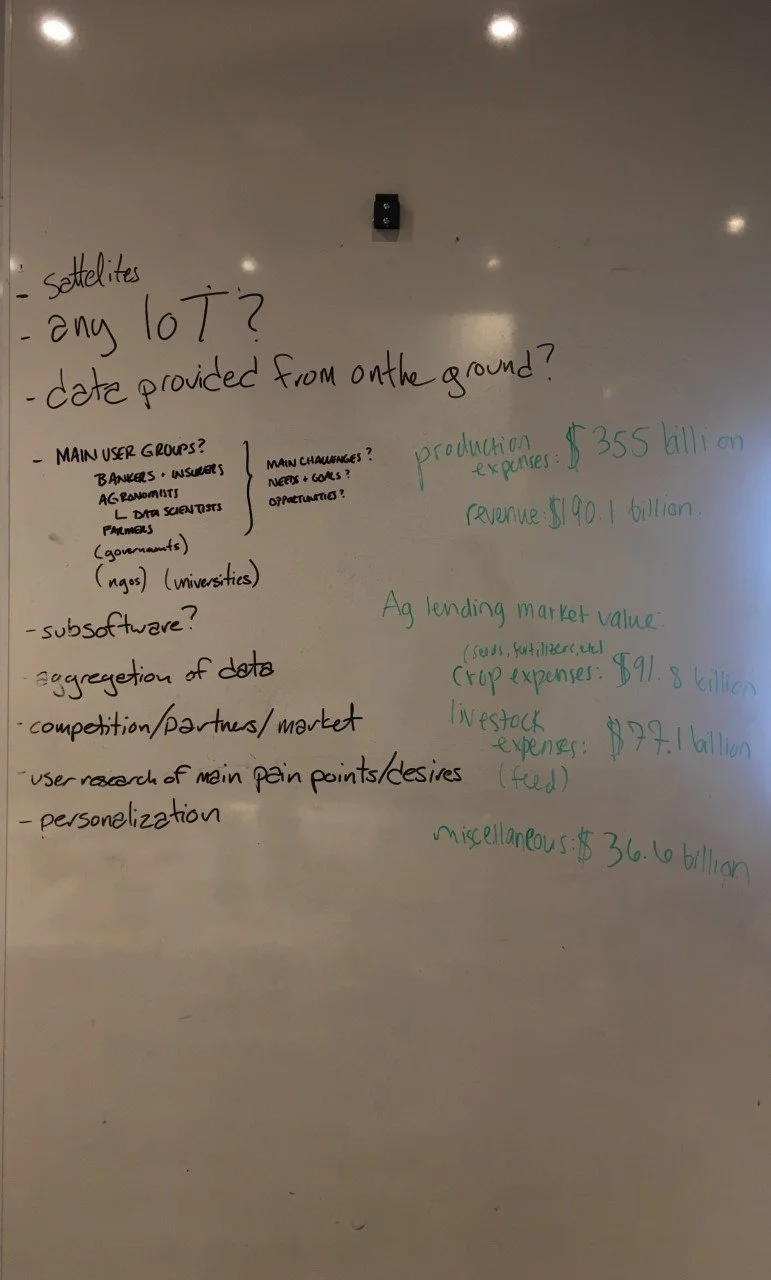 - sattelites
- any IoT?
- data provided from onthe ground?
- MAIN USER GROUPS?
BANKERS + INSURERS
AGRONOMISTS
L DATA SCIENTISTS
FARMERS
(governments)
(ngos) (universities)
MAIN CHALLENGES?
NEEDS + GOALS?
OPPORTUNITIES?
- subsoftware?
- aggregation of data
- competition/partners/market
- user research of main pain points/desires
- personalization
production
expenses: $355 billion
revenue: $190.1 billion.
Ag lending market value:
(seeds, fertilizers, etc)
crop expenses: $91.8 billion
livestock
expenses: $77.1 billion
(feed)
miscellaneous: $36.6 billion